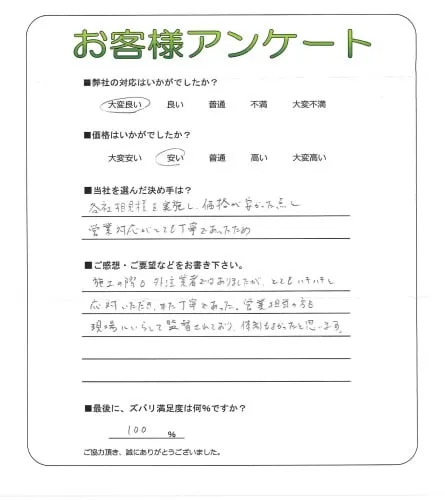 お客様アンケート
■弊社の対応はいかがでしたか？
大変良い 良い 普通 不満 大変不満
■価格はいかがでしたか？
大変安い 安い 普通 高い 大変高い
■当社を選んだ決め手は？
各社相見積を実施し、価格が安かった点と
営業対応がとても丁寧であったため
■ご感想・ご要望などをお書き下さい。
施工の際も外注業者ではありましたが、とてもハキハキと
応対いただき、また丁寧であった。営業担当の方も
現場にいらして監督されており、体制もよかったと思います。
■最後に、ズバリ満足度は何％ですか？
100 ％
ご協力頂き、誠にありがとうございました。